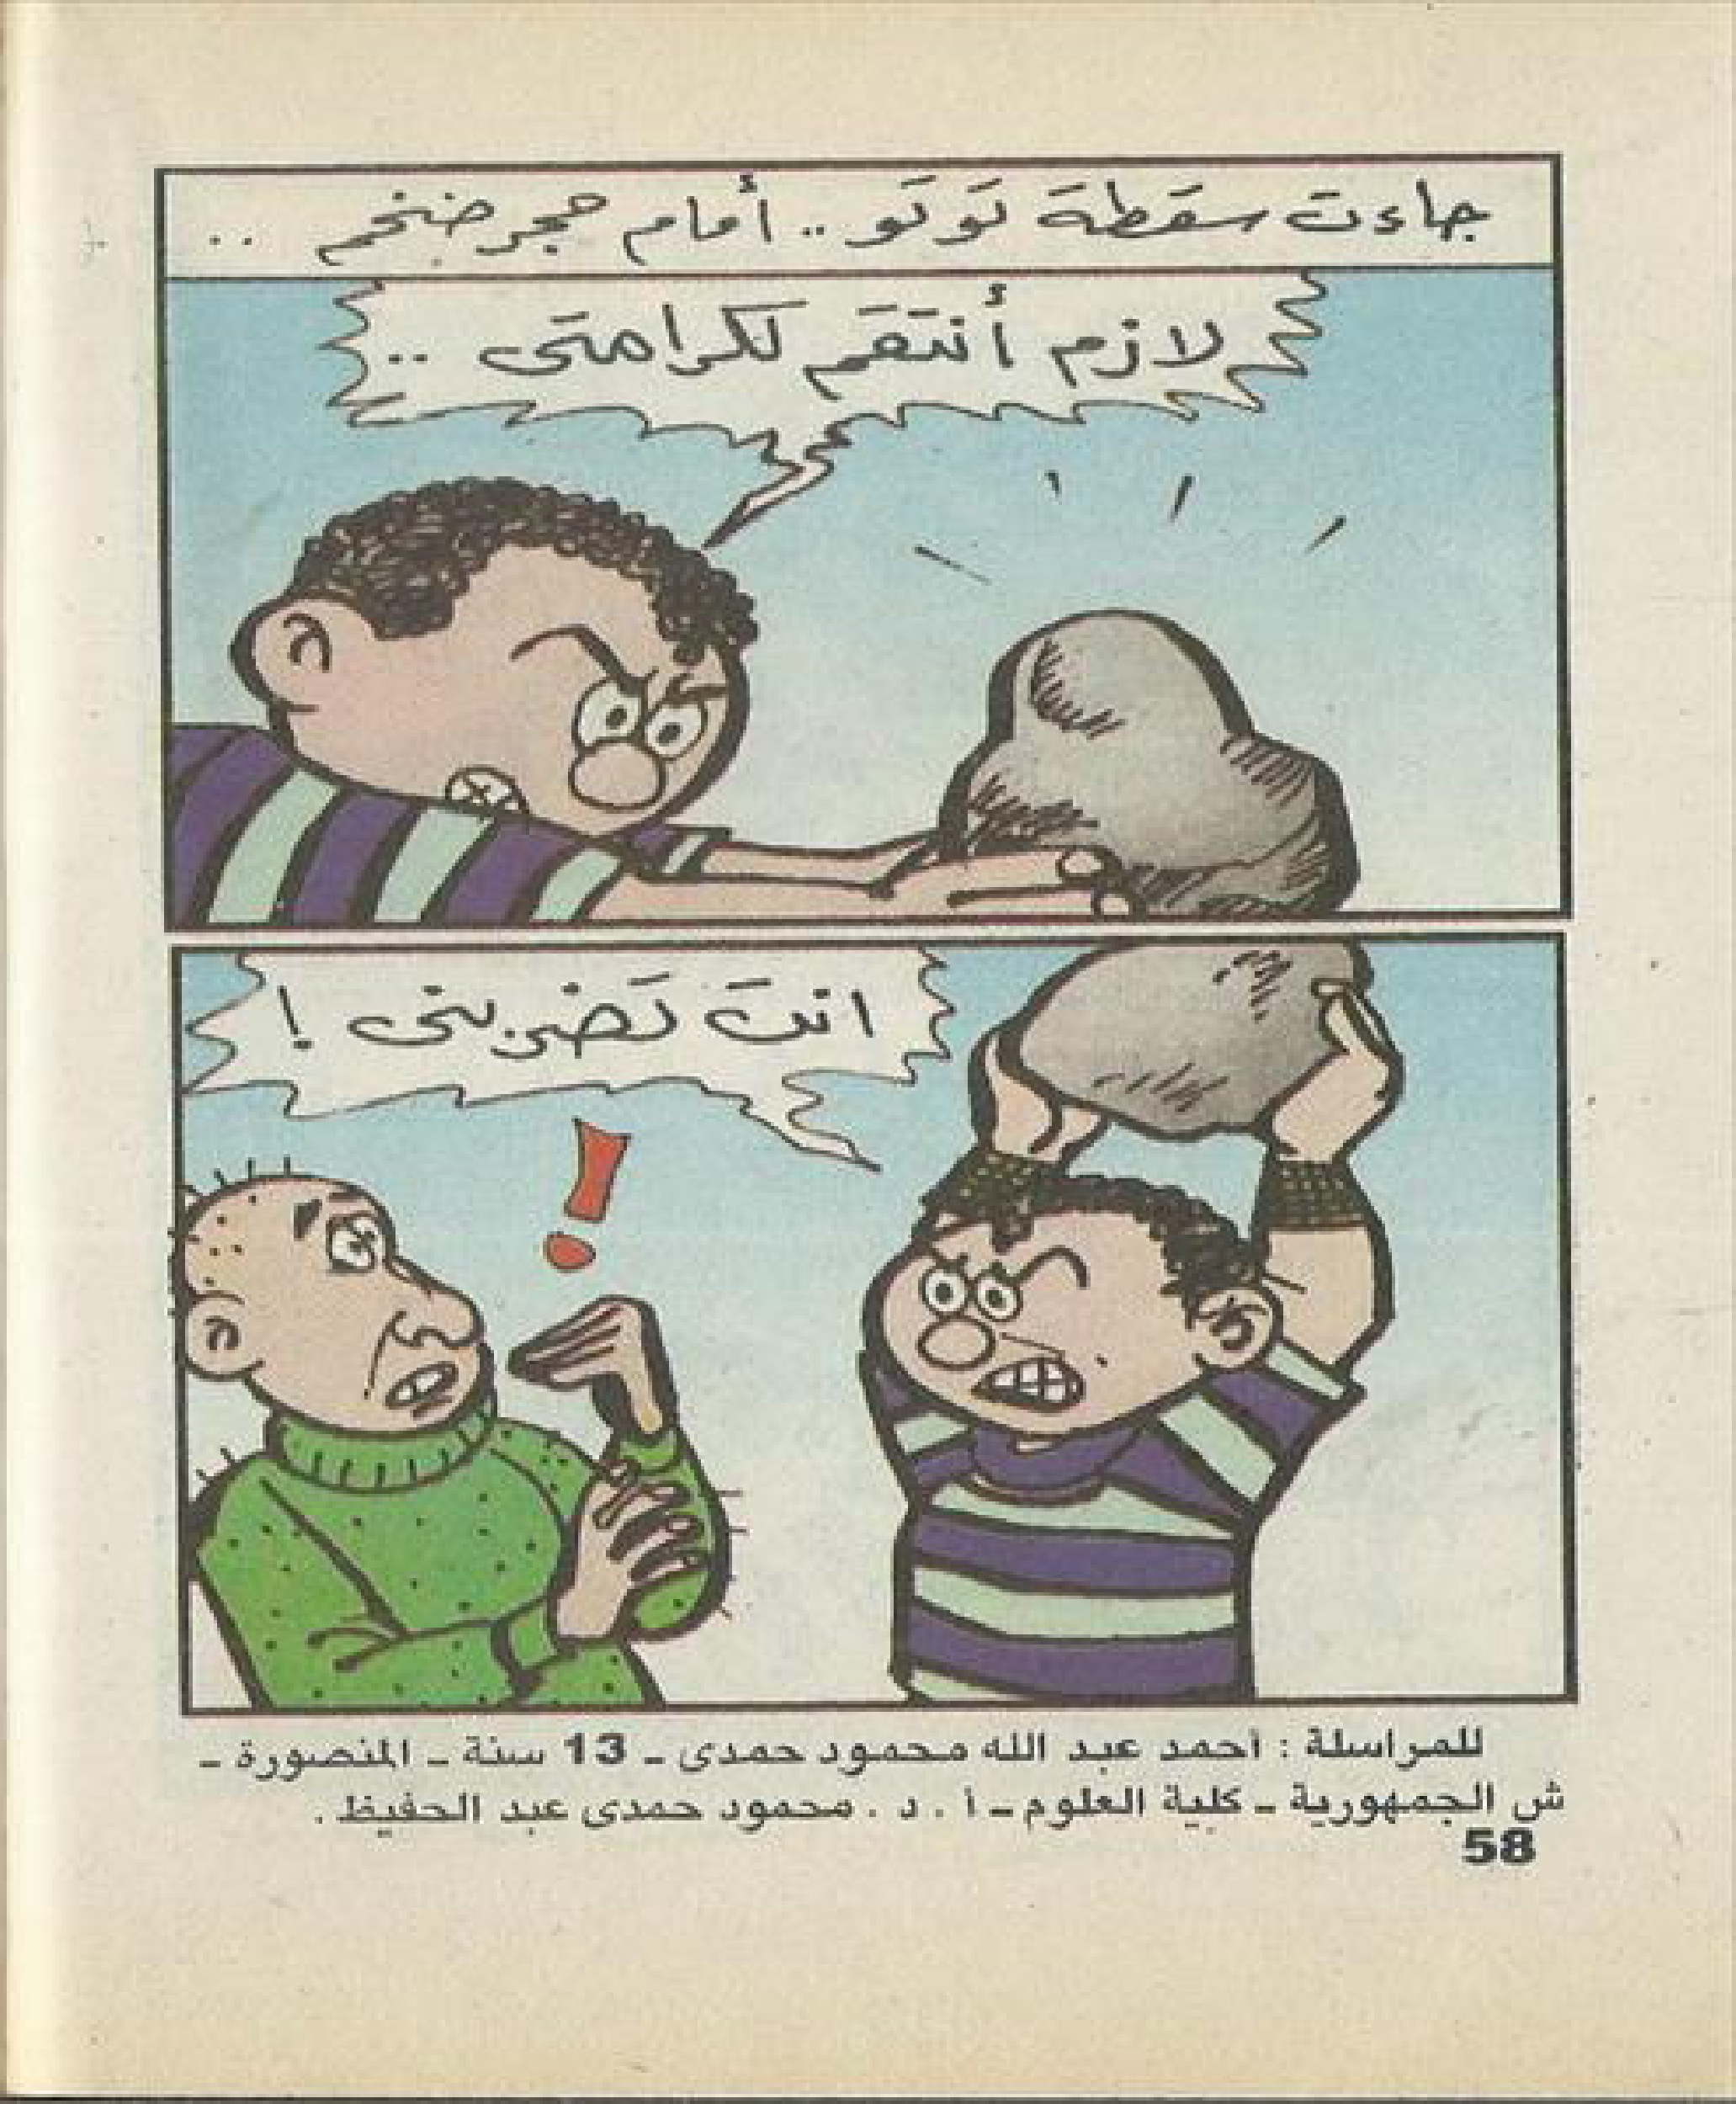 جاءت سقطة تَوتَو .. أمام حجر ضخم ..
لازم أنتقَم لكرامتى ..
انتَ تَضربنى !
!
للمراسلة : أحمد عبد الله محمود حمدى ـ 13 سنة ـ المنصورة ـ
ش الجمهورية ـ كلية العلوم ـ أ . د . محمود حمدى عبد الحفيظ .
58